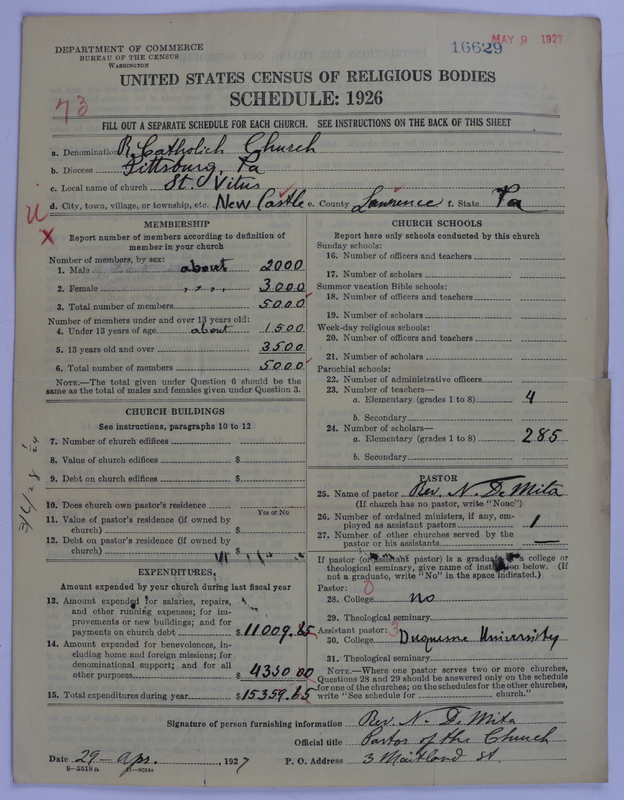 DEPARTMENT OF COMMERCE
BUREAU OF THE CENSUS
WASHINGTON
16629
MAY 9 1927
UNITED STATES CENSUS OF RELIGIOUS BODIES
SCHEDULE: 1926
73
FILL OUT A SEPARATE SCHEDULE FOR EACH CHURCH. SEE INSTRUCTIONS ON THE BACK OF THIS SHEET
a. Denomination R. Catholich Church
b. Diocese Pittsburg, Pa
c. Local name of church St. Vitus
d. City, town, village, or township, etc. New Castle e. County Lawrence f. State Pa
MEMBERSHIP
Report number of members according to definition of
member in your church
Number of members, by sex:
1. Male about 2000
2. Female " " 3000
3. Total number of members 5000
Number of members under and over 13 years old:
4. Under 13 years of age about 1500
5. 13 years old and over 3500
6. Total number of members 5000
NOTE.—The total given under Question 6 should be
same as the total of males and females given under Question 3.
CHURCH BUILDINGS
See instructions, paragraphs 10 to 12
7. Number of church edifices
8. Value of church edifices $
9. Debt on church edifices $
10. Does church own pastor's residence
Yes or No
11. Value of pastor's residence (if owned by
church) $
12. Debt on pastor's residence (if owned by
church) $
EXPENDITURES,
Amount expended by your church during last fiscal year
13. Amount expended for salaries, repairs,
and other running expenses; for im-
provements or new buildings; and for
payments on church debt $11009.85
14. Amount expended for benevolences, in-
cluding home and foreign missions; for
denominational support; and for all
other purposes $4350 00
15. Total expenditures during year $15359.85
CHURCH SCHOOLS
Report here only schools conducted by this church
Sunday schools:
16. Number of officers and teachers
17. Number of scholars
Summer vacation Bible schools:
18. Number of officers and teachers
19. Number of scholars
Week-day religious schools:
20. Number of officers and teachers
21. Number of scholars
Parochial schools:
22. Number of administrative officers
23. Number of teachers—
a. Elementary (grades 1 to 8) 4
b. Secondary
24. Number of scholars—
a. Elementary (grades 1 to 8) 285
b. Secondary
PASTOR
25. Name of pastor Rev. N. De Mita
(If church has no pastor, write "None")
26. Number of ordained ministers, if any, em-
ployed as assistant pastors 1
27. Number of other churches served by the
pastor or his assistants —
If pastor (or assistant pastor) is a graduate of a college or
theological seminary, give name of institution below. (If
not a graduate, write "No" in the space indicated.)
Pastor: 0
28. College no
29. Theological seminary
Assistant pastor: 3
30. College Duquesne University
31. Theological seminary
NOTE.—Where one pastor serves two or more churches,
Questions 28 and 29 should be answered only on the schedule
for one of the churches; on the schedules for the other churches,
write "See schedule for church."
Signature of person furnishing information Rev. N. De Mita
Official title Pastor of the Church
Date 29 - apr. , 1927
P. O. Address 3 Maitland st.